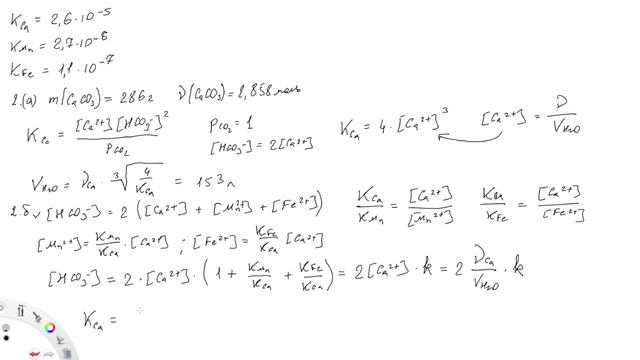 K_Ca = 2,6·10^-5
K_Mn = 2,7·10^-6
K_Fe = 1,1·10^-7
2.(а) m(CaCO3) = 286 г ν(CaCO3) = 2,858 моль
K_Ca = [Ca^2+][HCO3^-]^2 / P_CO2 P_CO2 = 1 [HCO3^-] = 2[Ca^2+] K_Ca = 4·[Ca^2+]^3 [Ca^2+] = ν / V_H2O
V_H2O = ν_Ca · ∛(4/K_Ca) = 153 л
2.б [HCO3^-] = 2([Ca^2+] + [Mn^2+] + [Fe^2+]) K_Ca/K_Mn = [Ca^2+]/[Mn^2+] K_Ca/K_Fe = [Ca^2+]/[Fe^2+]
[Mn^2+] = K_Mn/K_Ca · [Ca^2+] ; [Fe^2+] = K_Fe/K_Ca [Ca^2+]
[HCO3^-] = 2·[Ca^2+]·(1 + K_Mn/K_Ca + K_Fe/K_Ca) = 2[Ca^2+]·k = 2 ν_Ca/V_H2O · k
K_Ca =